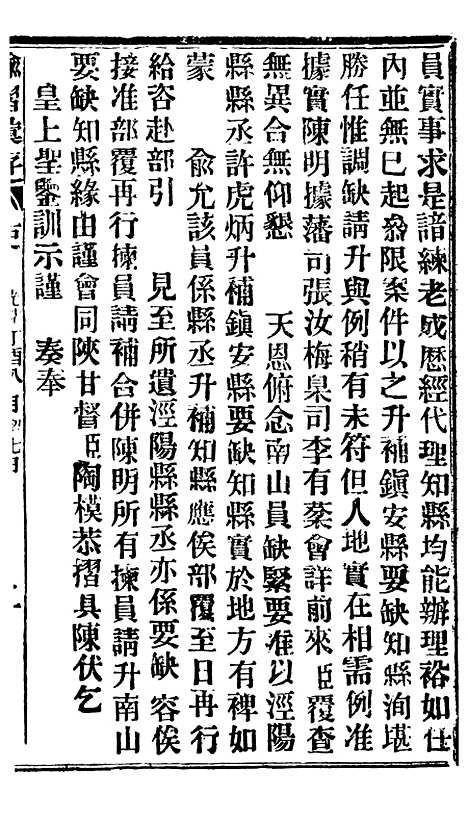 員實事求是諳練老成歷經代理知縣均能辦理裕如仕
內並無已起叅限案件以之升補鎮安縣要缺知縣洵堪
勝任惟調缺請升與例稍有未符但人地實在相需例准
據實陳明據藩司張汝梅臬司李有棻會詳前來臣覆查
無異合無仰懇　　天恩俯念南山員缺緊要准以涇陽
縣縣丞許虎炳升補鎮安縣要缺知縣實於地方有裨如
蒙　　俞允該員係縣丞升補知縣應俟部覆至日再行
給咨赴部引　　見至所遺涇陽縣縣丞亦係要缺　容俟
接准部覆再行揀員請補合併陳明所有揀員請升南山
要缺知縣緣由謹會同陝甘督臣陶模恭摺具陳伏乞
皇上聖鑒訓示謹　　奏奉
諭摺彙存 光緒丁酉八月初七日